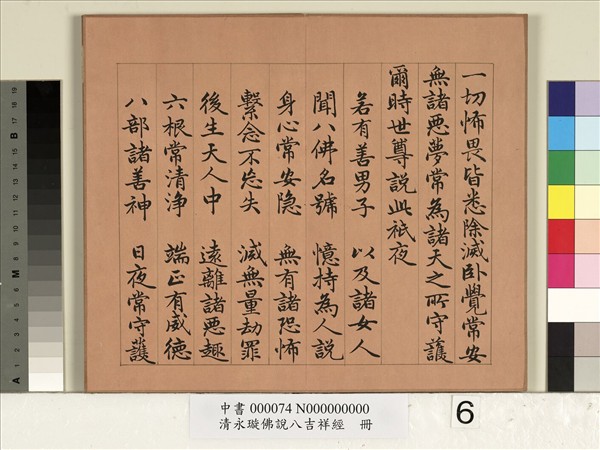 一切怖畏皆悉除滅卧覺常安
無諸惡夢常為諸天之所守護
爾時世尊說此祇夜
若有善男子 以及諸女人
聞八佛名號 憶持為人說
身心常安隱 無有諸恐怖
繫念不忘失 滅無量劫罪
後生天人中 遠離諸惡趣
六根常清淨 端正有威德
八部諸善神 日夜常守護
中書 000074 N000000000
清永璇佛說八吉祥經 冊
6
A 1 2 3 4 5 6 M 8 9 10 11 12 13 14 15 B 17 18 19